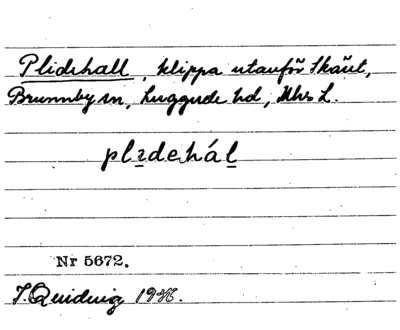 Plidehall, klippa utanför Skäret,
Brunnby sn, Luggude hd, Mhs L.
plɪdehál
Nr 5672.
J. Quidwig